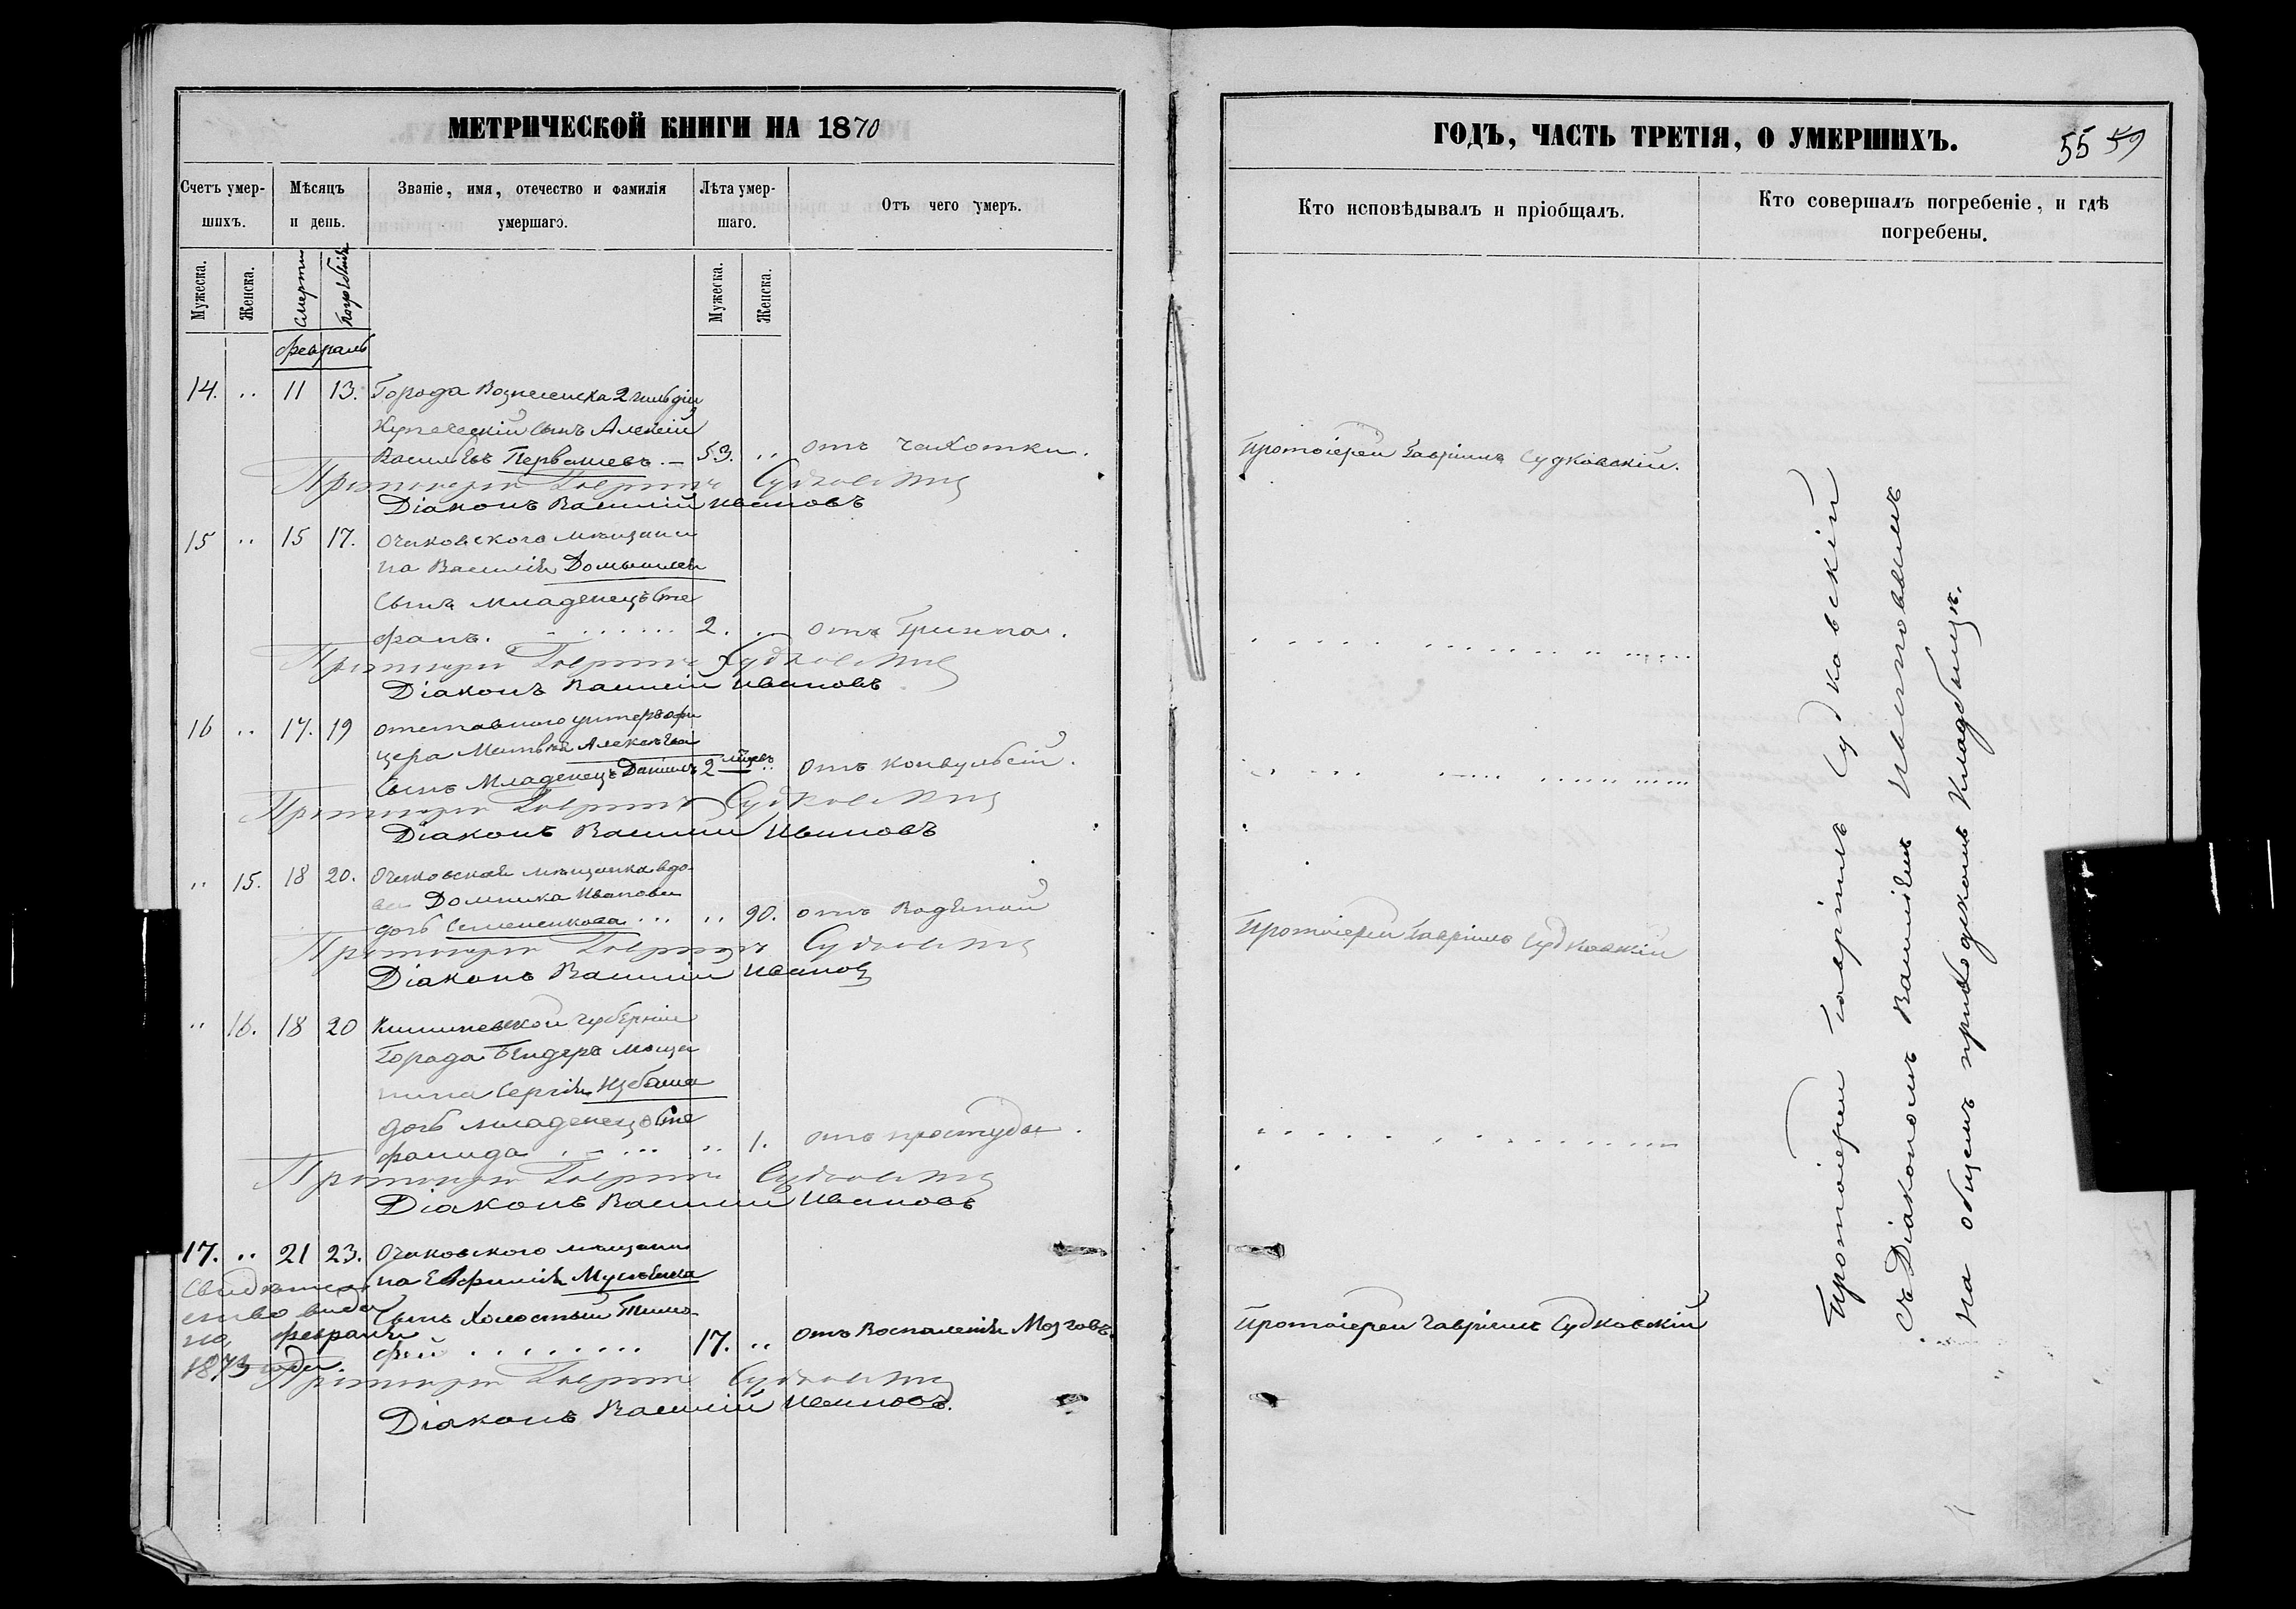 МЕТРИЧЕСКОЙ КНИГИ НА 1870
Счетъ умер-
шихъ.
Мѣсяцъ
и день.
Званіе, имя, отечество и фамилія
умершаго.
Лѣта умер-
шаго.
Отъ чего умеръ.
Мужеска.
Женска.
Смерти
Погребенія
Мужеска.
Женска.
Февраль
14. .. 11 13. Города Вознесенска 2 гильдіи
Купеческій сынъ Алексій
Васильевъ Первашевъ. — 53. .. отъ чахотки.
Протоіерей Гавріилъ Судковскій
Діаконъ Василій Ивановъ
15 .. 15 17. Очаковского мѣщани
на Василія
сынъ младенецъ Сте
фанъ. 2. .. отъ
Протоіерей Гавріилъ Судковскій
Діаконъ Василій Ивановъ
16 .. 17. 19 отставного унтеръ офи
цера Матвѣя Алексѣева
сынъ Младенецъ Даніилъ 2 .. отъ конвульсій.
Протоіерей Гавріилъ Судковскій
Діаконъ Василій Ивановъ
.. 15. 18 20. Очаковская мѣщанка вдо-
ва Домника Иванова
дочь Семененкова ... .. 90. отъ Водяной
Протоіерей Гавріилъ Судковскій
Діаконъ Василій Ивановъ
.. 16. 18 20 Кишиневской губерніи
Города Бендеръ мѣща
нина Сергія Избаша
дочь младенецъ Сте
фанида .. 1. отъ простуды.
Протоіерей Гавріилъ Судковскій
Діаконъ Василій Ивановъ
17. .. 21 23. Очаковского мѣщани
на Евфимія
сынъ Холостый Тимо-
фей 17. .. отъ Воспаленія Мозговъ.
Протоіерей Гавріилъ Судковскій
Діаконъ Василій Ивановъ.
Свидѣтель
ство выда
но февраля
1873 года.
ГОДЪ, ЧАСТЬ ТРЕТІЯ, О УМЕРШИХЪ.
55 59
Кто исповѣдывалъ и пріобщалъ.
Кто совершалъ погребеніе, и гдѣ
погребены.
Протоіерей Гавріилъ Судковскій.
Протоіерей Гавріилъ Судковскій
Протоіерей Гавріилъ Судковскій
Протоіерей Гавріилъ Судковскій
съ Діакономъ Василіемъ Ивановымъ
на общемъ приходскомъ Кладбищѣ.